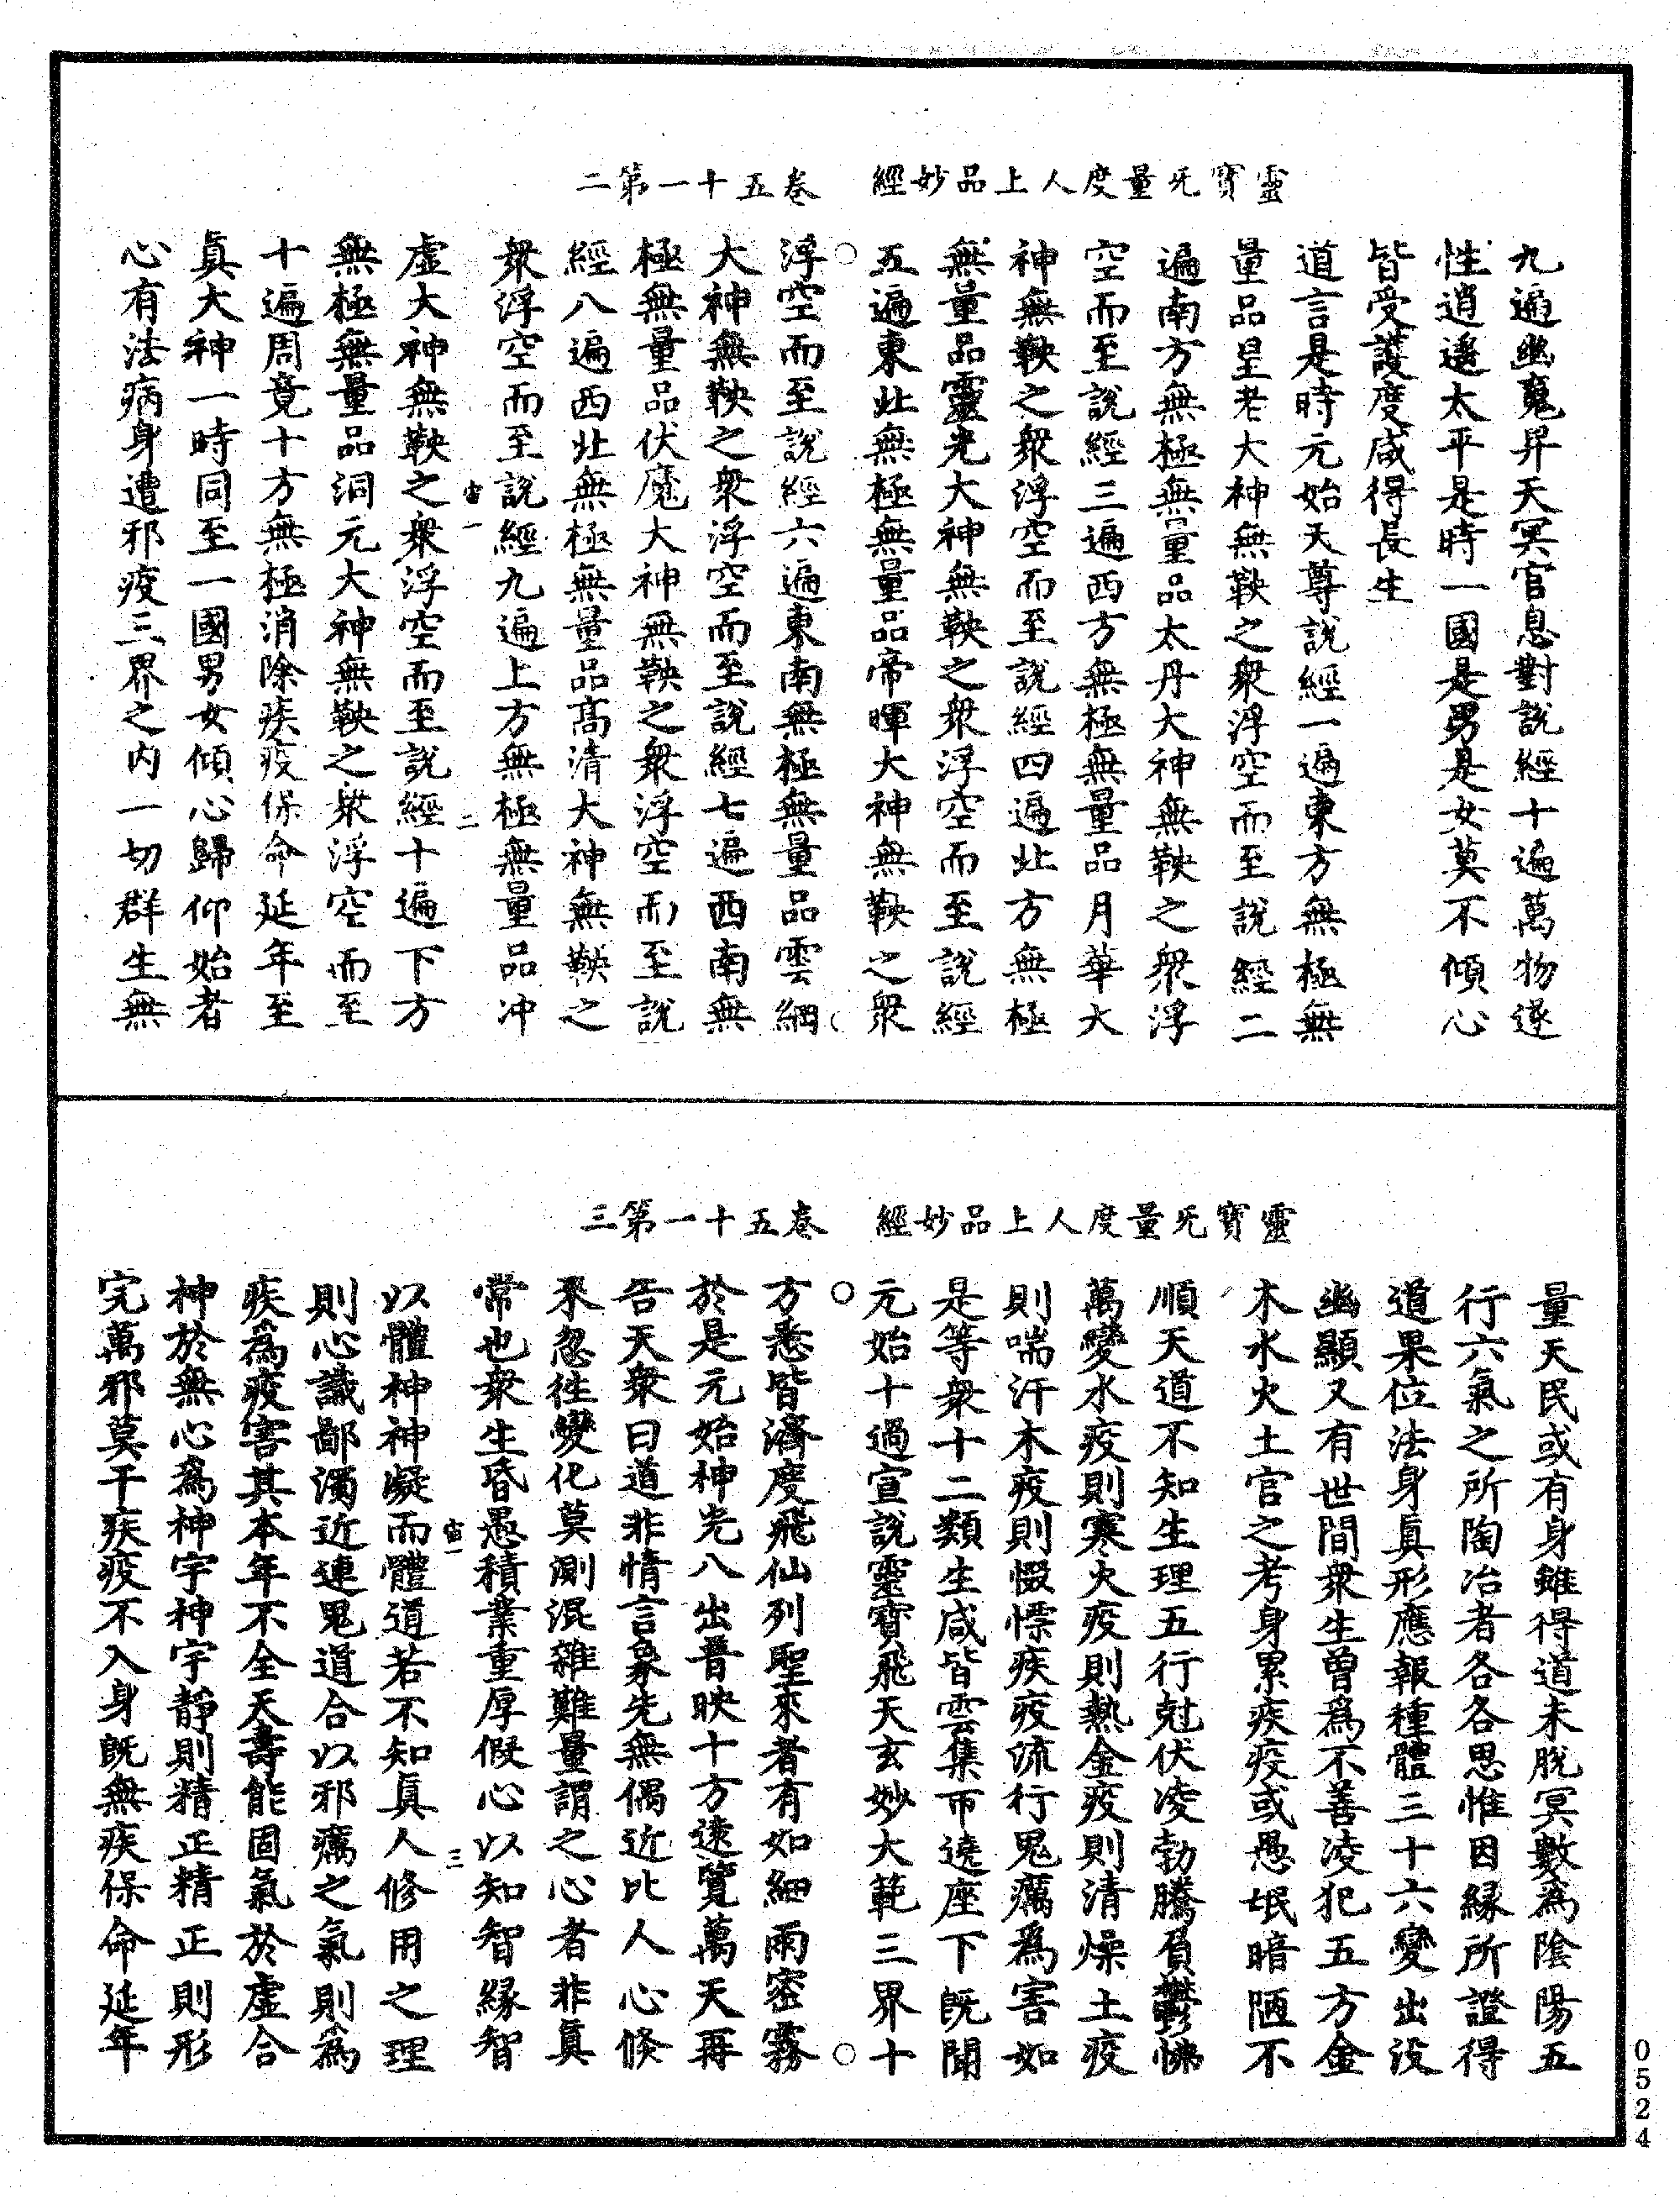 靈寶无量度人上品妙經　卷五十一第二
九遍幽䰟昇天冥官息對說經十遍萬物遂
性逍遙太平是時一國是男是女莫不傾心
皆受護度咸得長生
道言是時元始天尊說經一遍東方無極無
量品皇老大神無鞅之衆浮空而至說經二
遍南方無極無量品太丹大神無鞅之衆浮
空而至說經三遍西方無極無量品月華大
神無鞅之衆浮空而至說經四遍北方無極
無量品靈光大神無鞅之衆浮空而至說經
五遍東北無極無量品帝暉大神無鞅之衆
浮空而至說經六遍東南無極無量品雲綱
大神無鞅之衆浮空而至說經七遍西南無
極無量品伏魔大神無鞅之衆浮空而至說
經八遍西北無極無量品高清大神無鞅之
衆浮空而至說經九遍上方無極無量品沖
宙一　二
虛大神無鞅之衆浮空而至說經十遍下方
無極無量品洞元大神無鞅之衆浮空而至
十遍周竟十方無極消除疾疫保命延年至
眞大神一時同至一國男女傾心歸仰始者
心有法病身遭邪疫三界之內一切群生無
靈寶无量度人上品妙經　卷五十一第三
量天民或有身雖得道未脫冥數爲陰陽五
行六氣之所陶冶者各各思惟因緣所證得
道果位法身眞形應報種體三十六變出沒
幽顯又有世間衆生曾爲不善凌犯五方金
木水火土官之考身累疾疫或愚氓暗陋不
順天道不知生理五行尅伏凌勃騰屓鬱怫
萬變水疫則寒火疫則熱金疫則清燥土疫
則喘汗木疫則惙慄疾疫流行鬼癘爲害如
是等衆十二類生咸皆雲集帀遶座下旣聞
元始十過宣說靈寶飛天玄妙大範三界十
方悉皆濟度飛仙列聖來者有如細雨密霧
於是元始神光八出普映十方遠覽萬天再
告天衆曰道非情言象先無偶近比人心倏
來忽徃變化莫測混雜難量謂之心者非眞
常也衆生昏愚積業重厚假心以知智緣智
宙一　三
以體神神凝而體道若不知眞人修用之理
則心識鄙濁近連鬼道合以邪癘之氣則爲
疾爲疫害其本年不全天壽能固氣於虛合
神於無心爲神宇神宇靜則精正精正則形
完萬邪莫干疾疫不入身旣無疾保命延年
0524